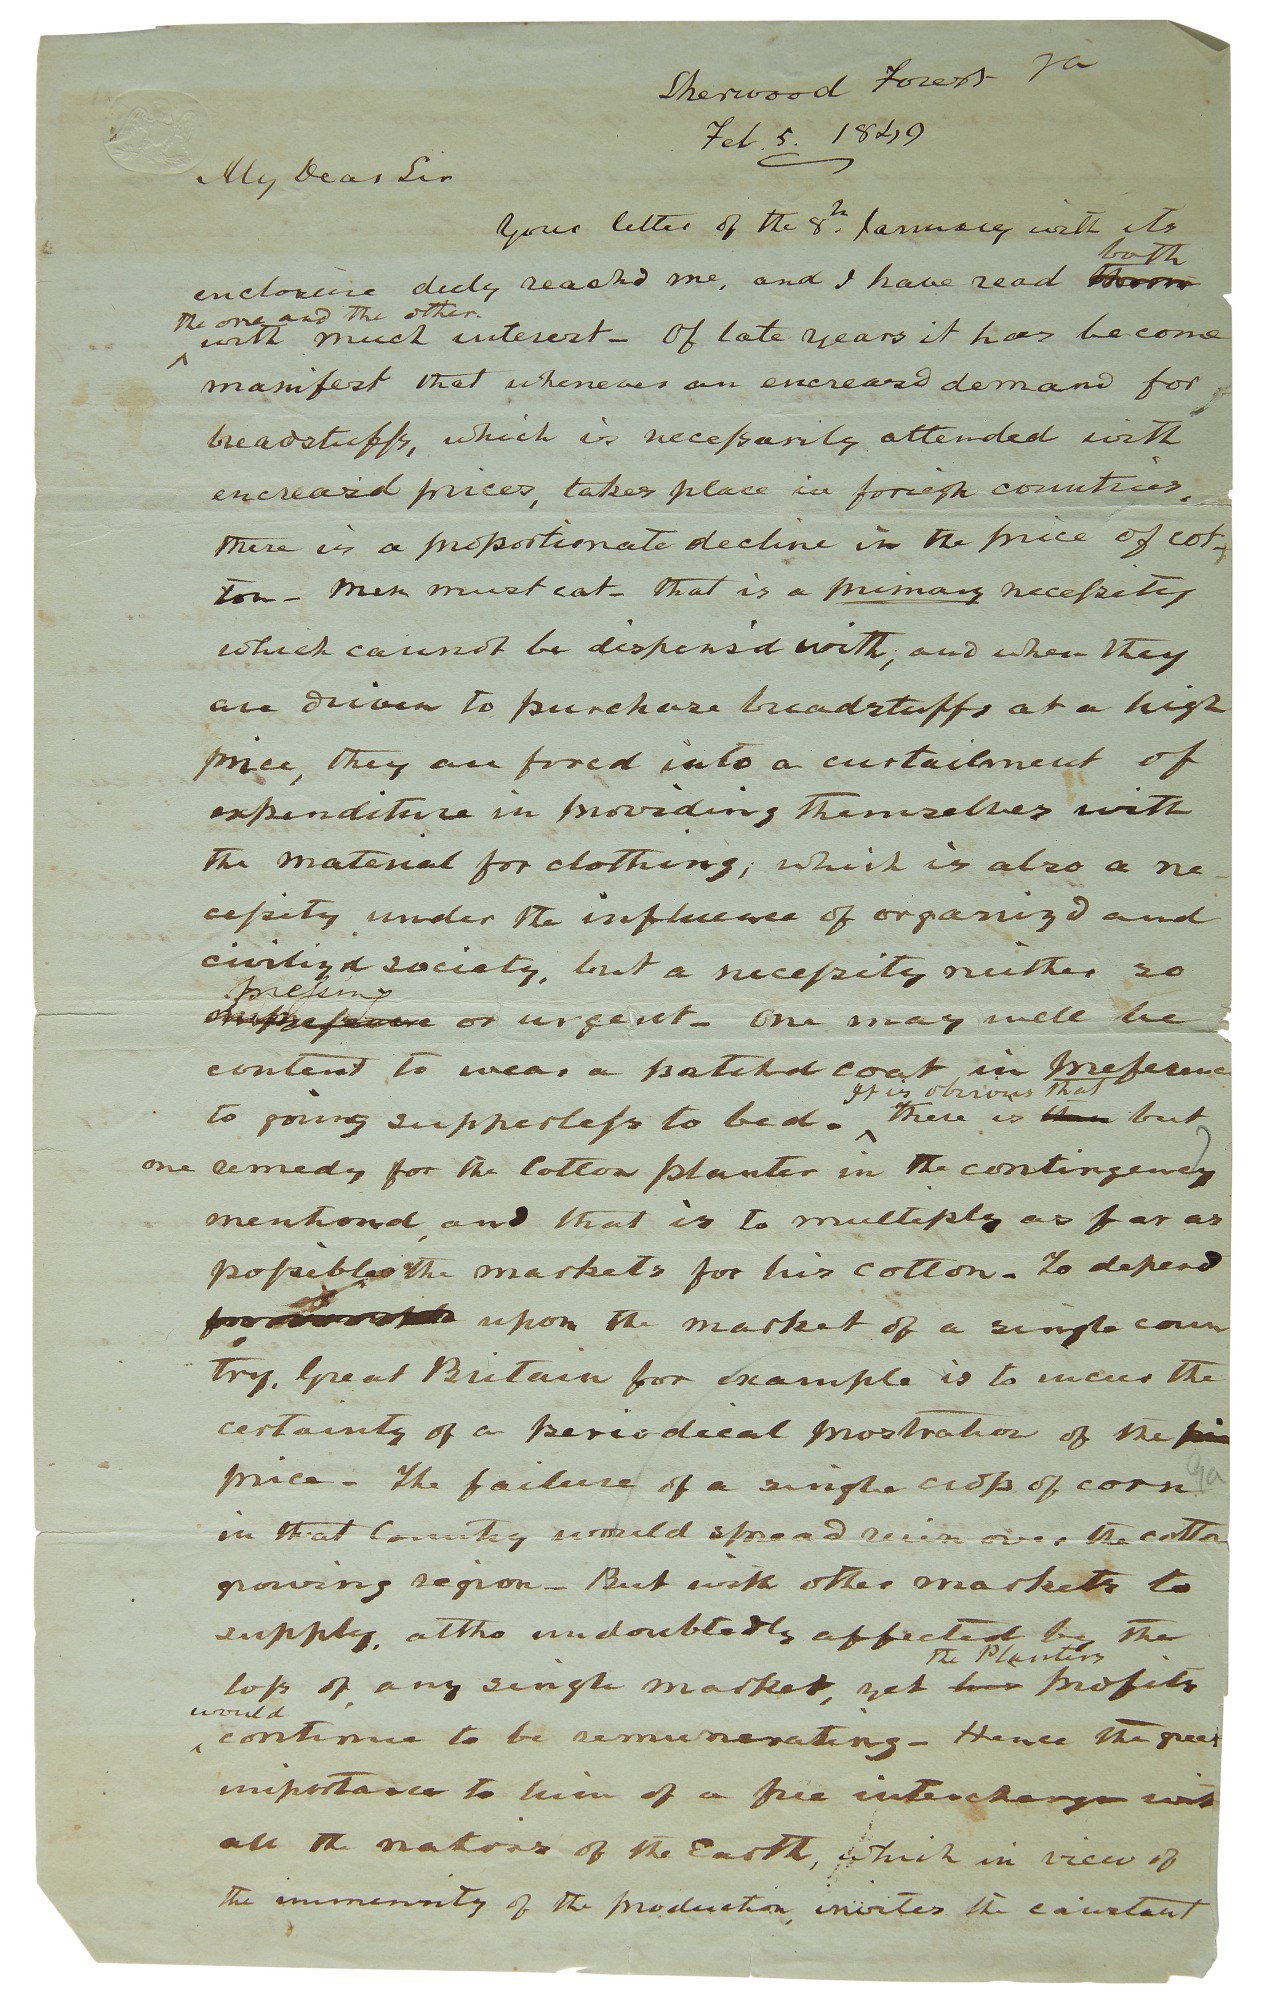 Sherwood Forest Va
Feb. 5. 1849
My Dear Sir
Your letter of the 8th. January with its
both
enclosure duly reach'd me, and I have read them
the one and the other.
with much interest - Of late years it has become
manifest that whenever an encreas'd demand for
breadstuffs, which is necessarily attended with
encreas'd prices, takes place in foriegn countries,
there is a proportionate decline in the price of cot-
ton - Men must eat - that is a primary necessity
which cannot be dispens'd with, and when they
are driven to purchase breadstuffs at a high
price, they are forced into a curtailment of
expenditure in providing themselves with
the material for clothing, which is also a ne-
cessity under the influence of organiz'd and
civiliz'd society, but a necessity neither so
pressing
or urgent - One may well be
content to wear a patch'd coat in preference
It is obvious that
to going supperless to bed. there is then but
one remedy for the Cotton planter in the contingency
mention'd, and that is to multiply as far as
possible the markets for his cotton - To depend
upon the market of a single coun
try, Great Britain for example is to incur the
certainty of a periodical prostration of the pri
price - The failure of a single crop of corn
in that Country would spread ruin over the cotton
growing region - But with other markets to
supply, altho undoubtedly affected by the
the Planters
loss of any single market, yet his profits
would
continue to be remunerating - Hence the great
importance to him of a free interchange with
all the nations of the Earth, which in view of
the immensity of the production, invites the constant